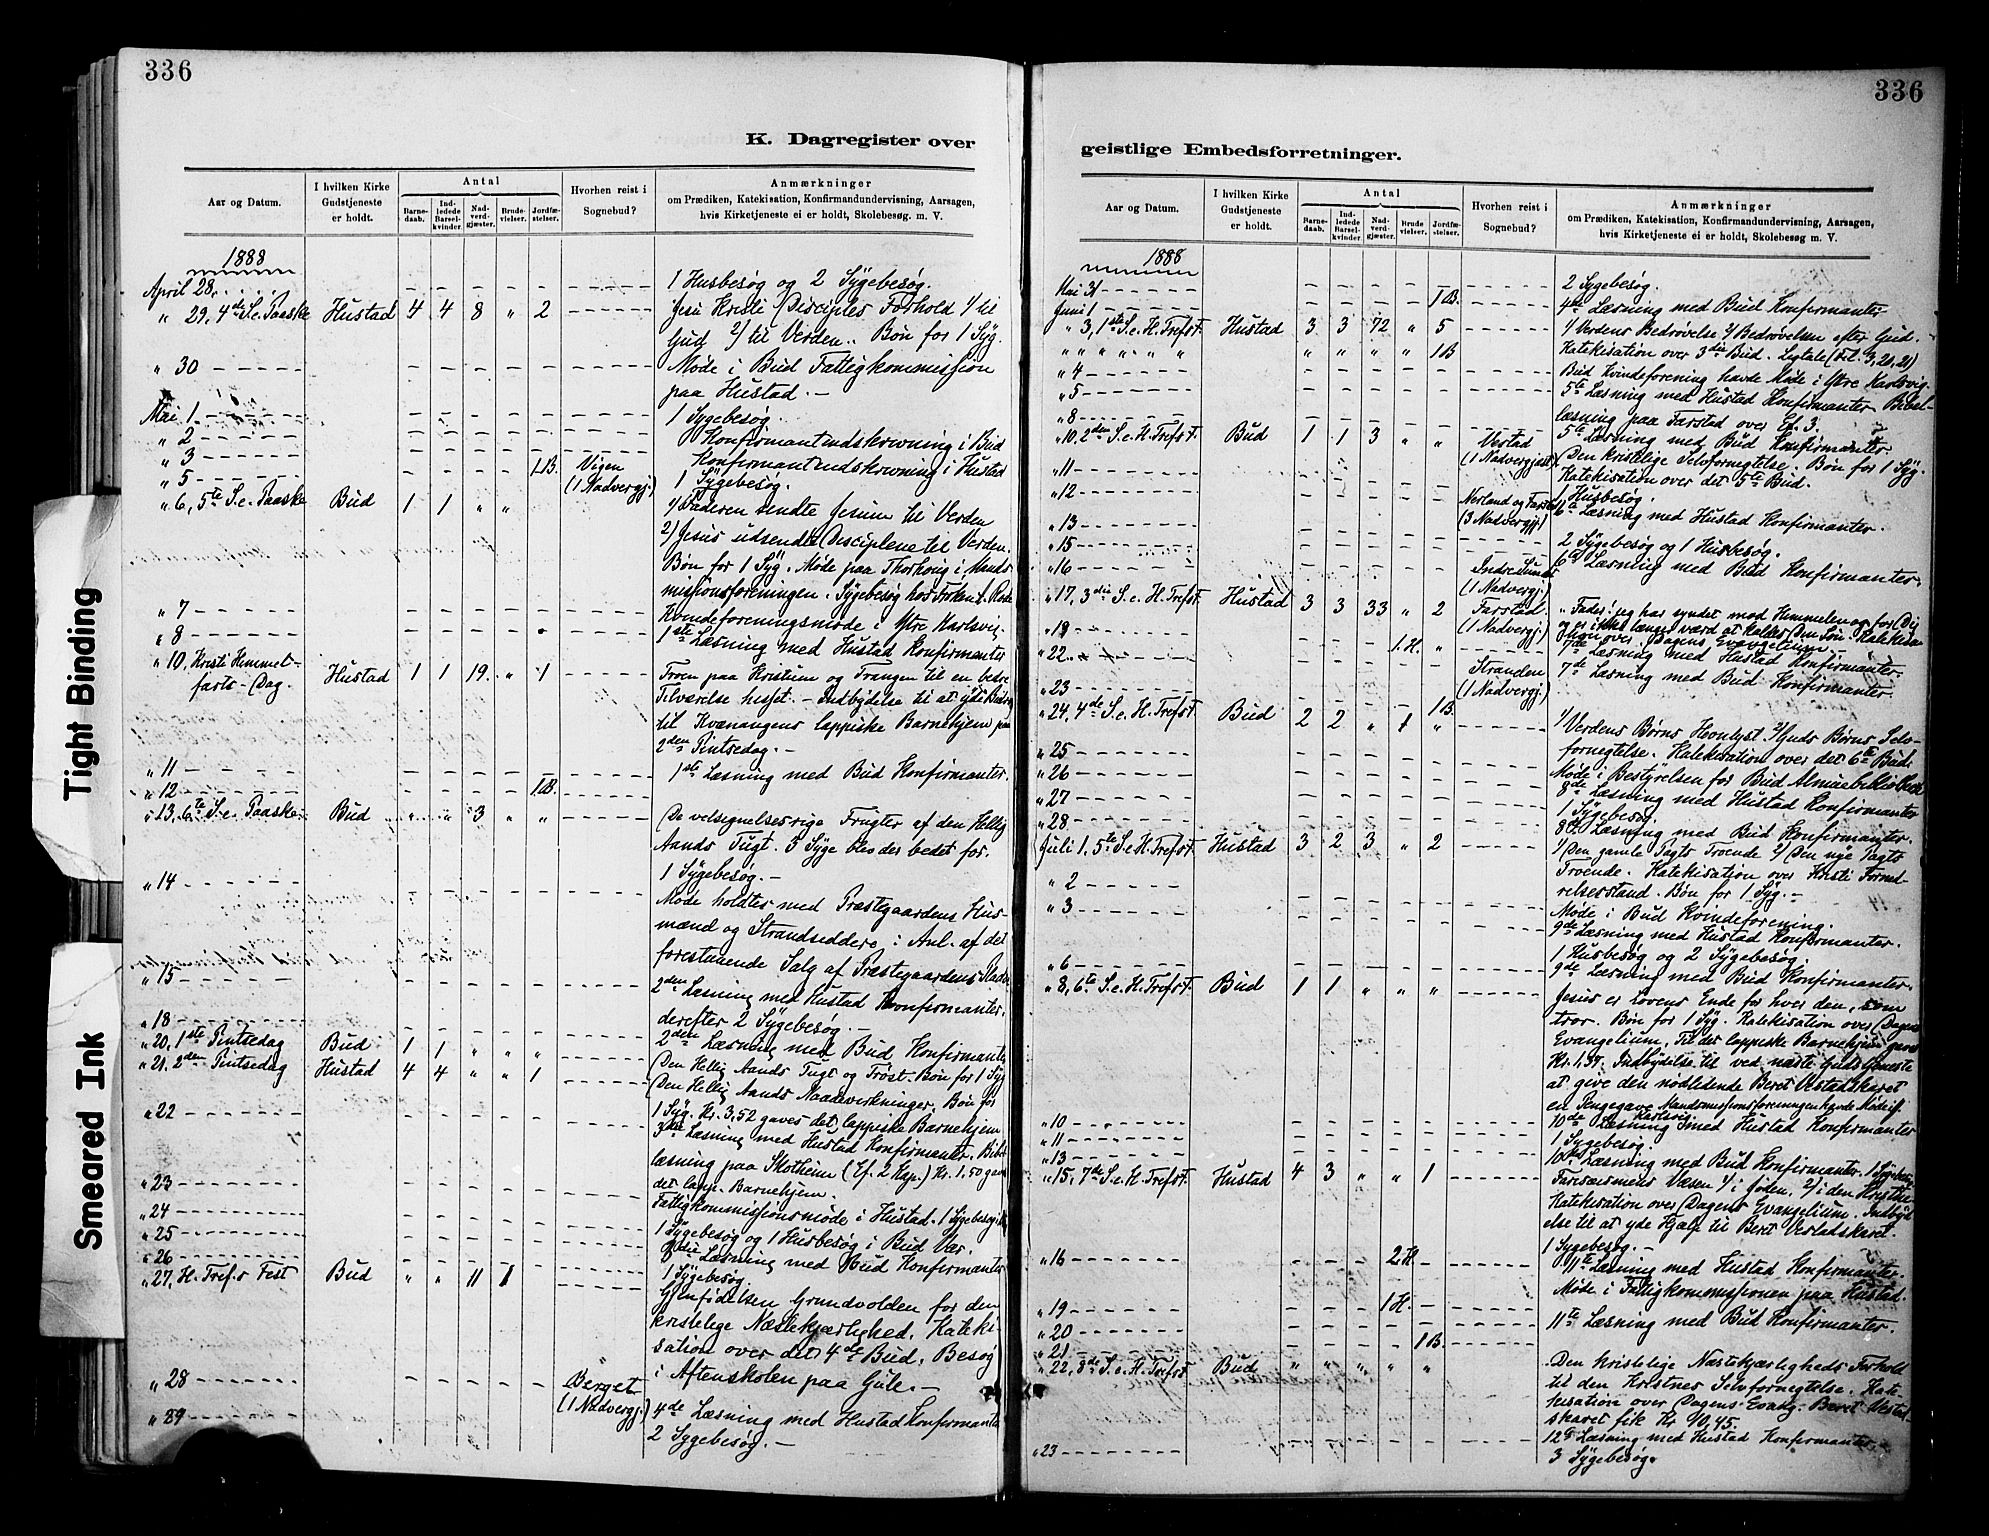 336
K. Dagregister over
Aar og Datum.
I hvilken Kirke Gudstjeneste er holdt.
Antal
Barnedaab.
Indledede Barselkvinder.
Nadverdgjæster.
Brudevielser.
Jordfæstelser.
Hvorhen reist i Sognebud?
Anmærkninger
om Prædiken, Katekisation, Konfirmandundervisning, Aarsagen,
hvis Kirketjeneste ei er holdt, Skolebesøg. m. V.
1888
April 28. 1 Husbesøg og 2 Sygebesøg.
" 29, 4de S. e. Paaske Hustad 4 4 8 " 2 Jesu Kristi Disciples Forhold 1/ til
Gud 2/ til Verden. Bøn for 1 Syg.
" 30 Møde i Bud Fattigkommission
paa Hustad. -
Mai 1. 1 Sygebesøg.
" 2 Konfirmantindskrivning i Bud
" 3 Konfirmantindskrivning i Hustad
" 5 1B. Vigen 1 Sygebesøg.
(1 Nadvergj.)
" 6, 5te S. e. Paaske Bud 1 1 " " 1/ Faderen sendte Jesum til Verden
2) Jesus udsendte Disciplene til Verden.
Bøn for 1 Syg. Møde paa i Mands
missionsforeningen. Sygebesøg hos
" 7 Kvindeforeningsmøde i Ytre Karlsvig.
" 8 1ste Læsning med Hustad Konfirmanter
" 10, Kristi Himmel-
farts-Dag. Hustad 1 1 19 " 1 Troen paa Kristum og Trangen til en bedre
Tilværelse hisset. - Indbydelse til at yde Bidrag
til Kvænangens lappiske Barnehjem paa
2den Pintsedag. -
" 11 1ste Læsning med Bud Konfirmanter.
" 12 1B.
" 13, 6te S. e. Paaske Bud " " 3 " " De velsignelsesrige Frugter af den Hellig
Aands Tugt. 3 Syge blev der bedet for.
" 14 1 Sygebesøg. -
Møde holdtes med Præstegaardens Hus-
mænd og Strandsiddere i Anl. af det
forestaaende Salg af Præstegaardens
" 15 2den Læsning med Hustad Konfirmanter.
derefter 2 Sygebesøg. -
" 18 2den Læsning med Bud Konfirmanter
" 20, 1ste Pintsedag Bud 1 1 " " " Den Hellig Aands Tugt og Trøst. Bøn for 1 Syg
" 21, 2den Pintsedag Hustad 4 4 " " 1 Den Hellig Aands Naadevirkninger. Bøn for
1 Syg. Kr. 3,52 gaves det lappiske Barnehjem
" 22 3die Læsning med Hustad Konfirmanter. Bibel
læsning paa Skotheim (Ef. 2 Kap.) Kr. 1.50 gaves
det lapp. Barnehjem.
" 23 Fattigkommissionsmøde i Hustad. 1 Sygebesøg
" 24 1 Sygebesøg og 1 Husbesøg i Bud Vær.
" 25 3die Læsning med Bud Konfirmanter
" 26 1 Sygebesøg.
" 27, H. Tref.s Fest Bud " " 11 1 Gjenfødelsen Grundvolden for den
kristelige Næstekjærlighed. Kateki-
sation over det 4de Bud. Besøg
i Aftenskolen paa Gule. -
" 28 Berget
(1 Nadvergj.)
" 29 4de Læsning med Hustad Konfirmanter
2 Sygebesøg. -
336
geistlige Embedsforretninger.
Aar og Datum.
I hvilken Kirke Gudstjeneste er holdt.
Antal
Barnedaab.
Indledede Barselkvinder
Nadverdgjæster.
Brudevielser.
Jordfæstelser.
Hvorhen reist i Sognebud?
Anmærkninger
om Prædiken, Katekisation, Konfirmandundervisning, Aarsagen,
hvis Kirketjeneste ei er holdt, Skolebesøg m. V.
1888
Mai 31 2 Sygebesøg.
Juni 1 1B. 4de Læsning med Bud Konfirmanter
" 3, 1ste S. e. H. Trefst. Hustad 3 3 72 " 5 1/ Verdens Bedrøvelse 2/ Bedrøvelsen efter Gud.
" " " " " " " " " " 1B Katekisation over 3die Bud. Ligtale (Fil. 3, 20, 21)
" 4 Bud Kvindeforening havde Møde i Ytre Karlsvig.
" 5 5te Læsning med Hustad Konfirmanter. Bibel-
læsning paa Farstad over Ef. 3.
" 8 5te Læsning med Bud Konfirmanter
" 10, 2den S. e. H. Trefst. Bud 1 1 3 " " Vestad Den kristelige Selvfornegtelse. Bøn for 1 Syg.
(1 Nadvergjæst.) Katekisation over det 5te Bud.
" 11 1 Husbesøg.
" 12 Nerland og Farstad 6te Læsning med Hustad Konfirmanter.
" 13 (3 Nadvergj.) 2 Sygebesøg og 1 Husbesøg.
" 15 6te Læsning med Bud Konfirmanter.
" 16 Indre
(1 Nadvergj.)
" 17, 3die S. e. H. Trefst. Hustad 3 3 33 " 2 Farstad "Fader! jeg har syndet mod Himmelen og for Dig
(1 Nadvergj.) og er ikke længer værd at kaldes Din Søn". Katekisa-
tion over Dagens Evangelium. -
" 19 1.H. "
" 22 7de Læsning med Hustad Konfirmanter.
Stranden 7de Læsning med Bud Konfirmanter
" 23 (1 Nadvergj.)
1B.
" 24, 4de S. e. H. Trefst. Bud 2 2 " 1 " 1/ Verdens Børns Hevnlyst 2/ Guds Børns Selv-
fornegtelse. Katekisation over det 6te Bud.
" 25 Møde i Bestyrelsen for Bud Almuebibliothek
" 26 8de Læsning med Hustad Konfirmanter
" 27 1 Sygebesøg.
" 28 8de Læsning med Bud Konfirmanter.
Juli 1. 5te S. e. H. Trefst. Hustad 3 2 3 " 2 1/ Den gamle Pagts Troende 2/ Den nye Pagts
Troende. Katekisation over Kristi Forned-
relsesstand. Bøn for 1 Syg. -
" 2 Møde i Bud Kvindeforening.
" 3 9de Læsning med Hustad Konfirmanter.
1 Husbesøg og 2 Sygebesøg.
" 6 9de Læsning med Bud Konfirmanter.
" 8, 6te S. e. H. Trefst. Bud 1 1 " " " Jesus er Lovens Ende for hver den, som
tror. Bøn for 1 Syg. Katekisation over Dagens
Evangelium. Til det lappiske Barnehjem gaves
Kr. 1.37. Indbydelse til ved næste Gudstjeneste
at give den nødlidende Beret Vestadskaret
en Pengegave. Mandsmissionsforeningen havde Møde i
Karlsvig.
" 10 10de Læsning med Hustad Konfirmanter
" 11 1 Sygebesøg.
" 13 10de Læsning med Bud Konfirmanter. 1 Sygebesøg
" 15, 7de S. e. H. Trefst. Hustad 4 3 " " 1 Farisæernes Væsen 1/ i Jøden. 2/ i den Kristne
Katekisation over Dagens Evangelium. Indbyd-
else til at yde Hjælp til Beret Vestadskaret.
1 Sygebesøg. -
" 16 2.H. 11te Læsning med Hustad Konfirmanter.
Møde i Fattigkommissionen paa Hustad.
" 19 1H.
" 20 11te Læsning med Bud Konfirmanter.
" 21 1B.
" 22, 8de S. e. H. Trefst. Bud " " " " " Den kristelige Næstekjærligheds Forhold
til den Kristnes Selvfornegtelse. Kate-
kisation over Dagens Evang. Beret Vestad-
skaret fik Kr 40,45.
" 23 12te Læsning med Hustad Konfirmanter
3 Sygebesøg.
Tight Binding
Smeared Ink